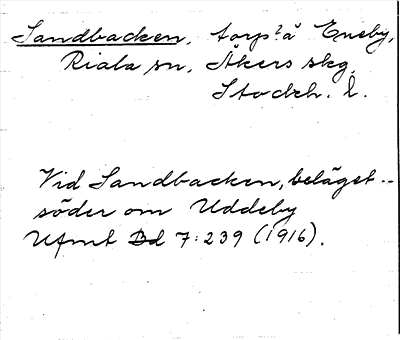 Sandbacken, torp? å Eneby,
Riala sn, Åkers skg,
Stockh. l.
Vid Sandbacken, beläget --
söder om Uddeby
Ufmt Bd 7:239 (1916).